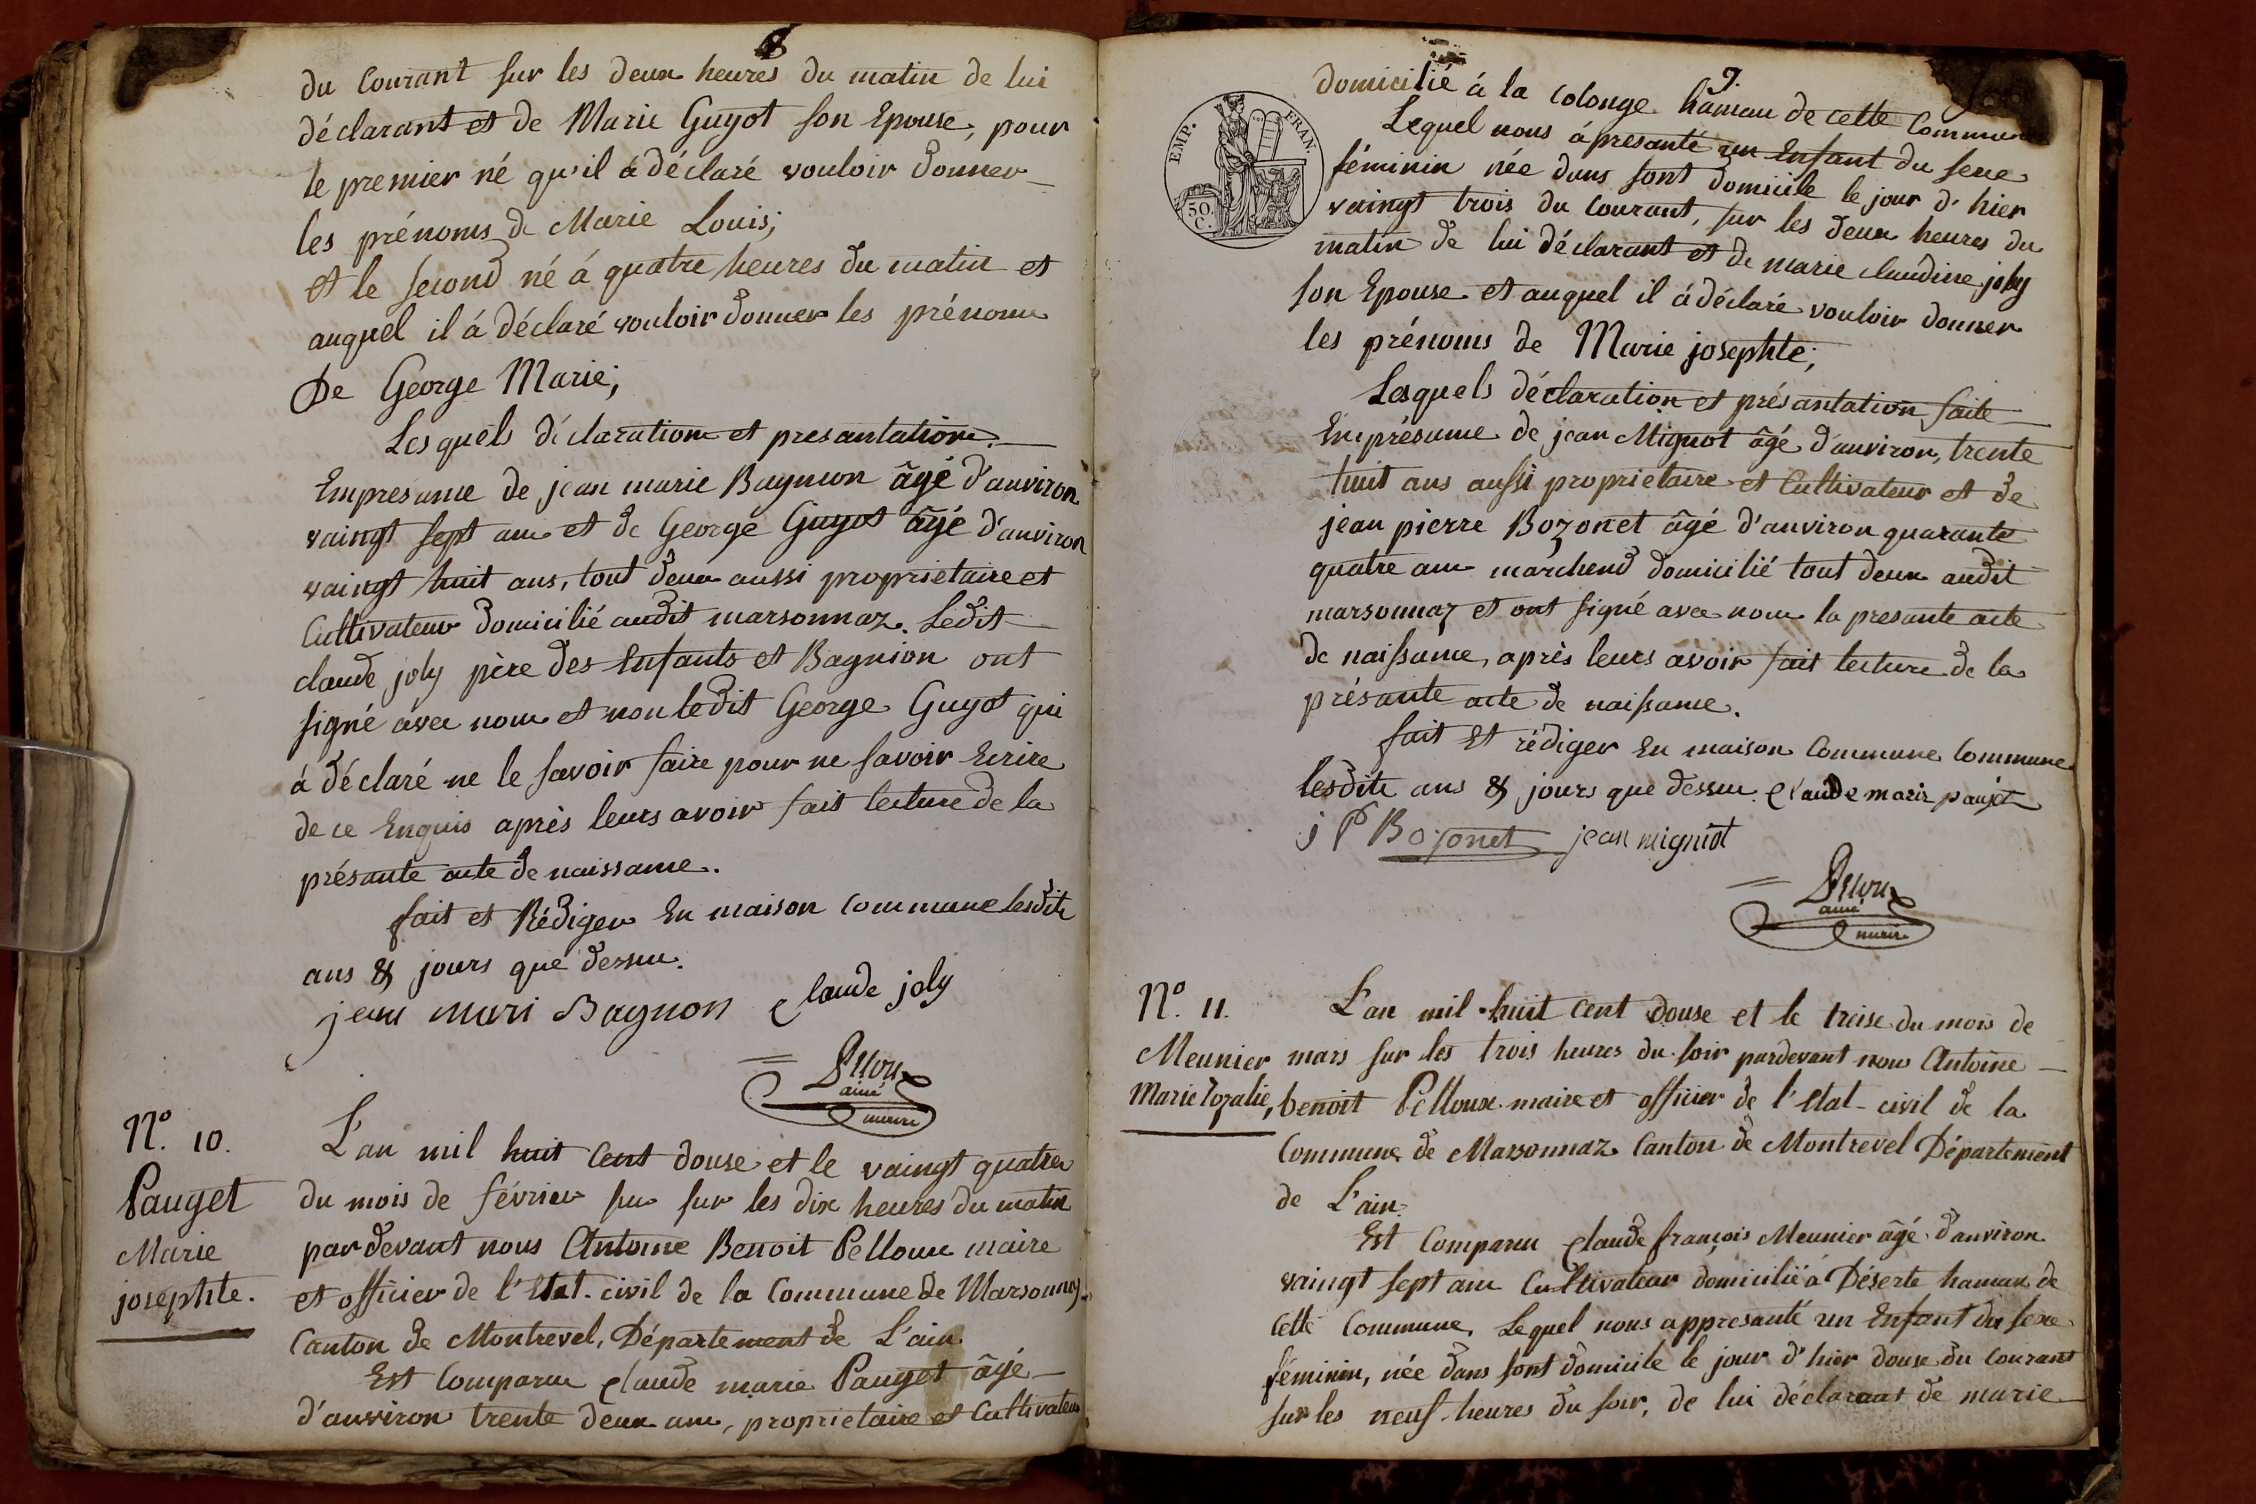 8
du Courant sur les deux heures du matin de lui
déclarant et de Marie Guyot son Epouse, pour
le premier né qu'il à déclaré vouloir donner
les prénoms de Marie Louis;
et le second né á quatre heures du matin et
auquel il á déclaré vouloir donner les prénoms
De George Marie;
Lesquels déclaration et presantation
Empresance de jean marie Bagnion âgé d'anviron
vaingt sept ans et de George Guyot âgé d'anviron
vaingt huit ans, tout deux aussi proprietaire et
Cultivateur domicilié audit marsonnaz. Ledit
claude joly père des Enfants et Bagnion ont
signé avec nous et non ledit George Guyot qui
á déclaré ne le savoir faire pour ne savoir Ecrire
de ce Enquis après leurs avoir fait lecture de la
présante acte de naissance.
fait et Rédiger En maison commune lesdits
ans & jours que dessus.
jean mari Bagnon claude joly
ainé
maire
N.o 10.
Pauget
Marie
josephte.
L'an mil huit Cent douse et le vaingt quatre
du mois de février sur les dix heures du matin
par devant nous Antoine Benoit Pelloux maire
et officier de l'Etat civil de la Commune de Marsonnaz
Canton de Montrevel, Département de L'ain
Est Comparu claude marie Pauget âgé
d'anviron trente deux ans, proprietaire et Cultivateur
9.
domicilié á la Colonge hamau de cette Commune
Lequel nous á presanté un Enfant du sexe
féminin née dans sont domicile le jour d'hier
vaingt trois du Courant, sur les deux heures du
matin de lui déclarant et de marie claudine joly
son Epouse et auquel il á déclaré vouloir donner
les prénoms de Marie josephte;
EMP. FRAN.
50.
C.
Lesquels déclaration et présantation faite
En présance de jean Mignot âgé d'anviron, trente
huit ans aussi proprietaire et Cultivateur et de
jean pierre Bozonet âgé d'anviron quarante
quatre ans marchend domicilié tout deux audit
marsonnaz et ont signé avec nous la presante acte
de naissance, après leurs avoir fait lecture de la
présante acte de naissance.
fait Et rédiger En maison Commune Commune
lesdits ans & jours que dessus. claude marie paujet
j P Bozonet jean migniot
ainé
maire
N.o 11.
Meunier
Marie Rozalie,
L'an mil huit Cent douse et le treise du mois de
mars sur les trois heures du soir pardevant nous Antoine
benoit Pelloux maire et officier de l'Etat-civil de la
Commune de Marsonnaz Canton de Montrevel Département
de L'ain.
Est Comparu claude françois Meunier âgé d'anviron
vaingt sept ans Cultivateur domicilié á Déserte hamau de
Cette Commune, Lequel nous appresanté un Enfant du sexe
féminin, née dans sont domicile le jour d'hier douse du Courant
sur les neuf heures du soir, de lui déclarant de marie